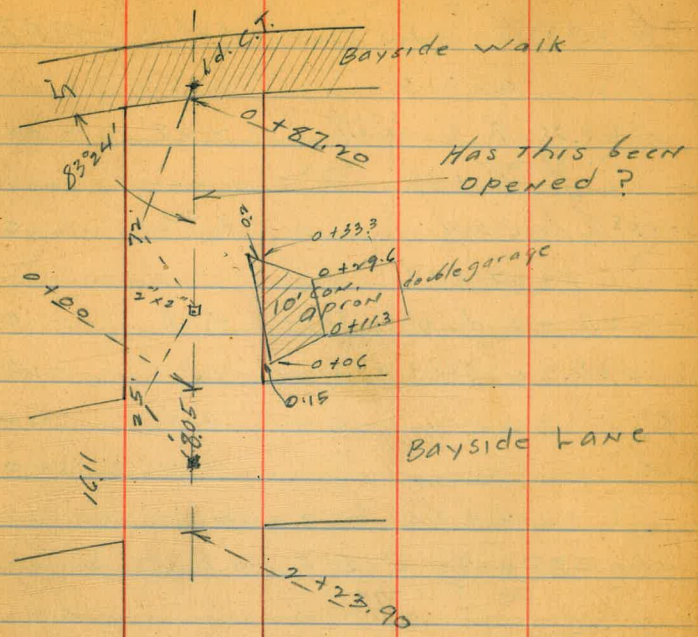 Ld. C.T.
Bayside Walk
5'
83°24'
0+87.20
Has this been
opened?
72'
0.2
0+33.3
0+29.6
double garage
10' con.
apron
0+00
2"x2"
0+11.3
0+06
0.15
25'
8.05'
Bayside Lane
16.11
2+23.90